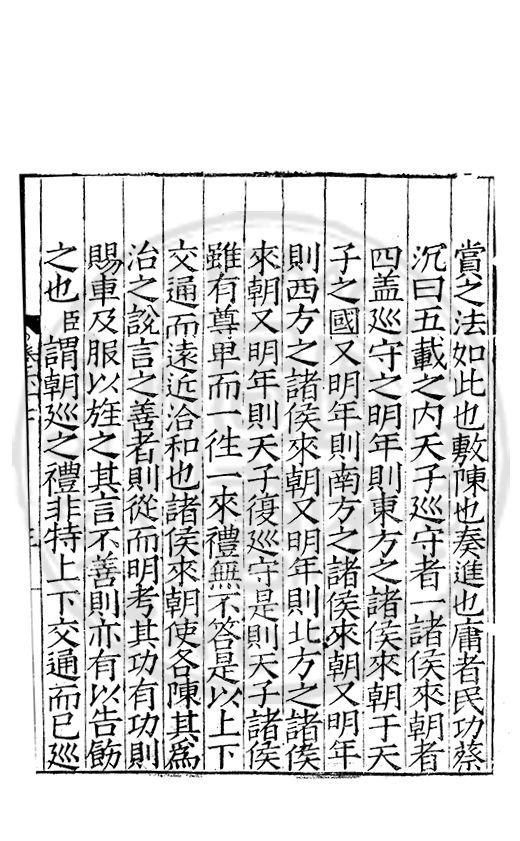 賞之法如此也敷陳也奏進也庸者民功蔡
沉曰五載之内天子巡守者一諸侯來朝者
四盖巡守之明年則東方之諸侯來朝于天
子之國又明年則南方之諸侯來朝又明年
則西方之諸侯來朝又明年則北方之諸侯
來朝又明年則天子復巡守是則天子諸侯
雖有尊卑而一徃一來禮無不答是以上下
交通而遠近洽和也諸侯來朝使各陳其爲
治之說言之善者則從而明考其功有功則
賜車及服以旌之其言不善則亦有以告飭
之也臣謂朝巡之禮非特上下交通而已巡